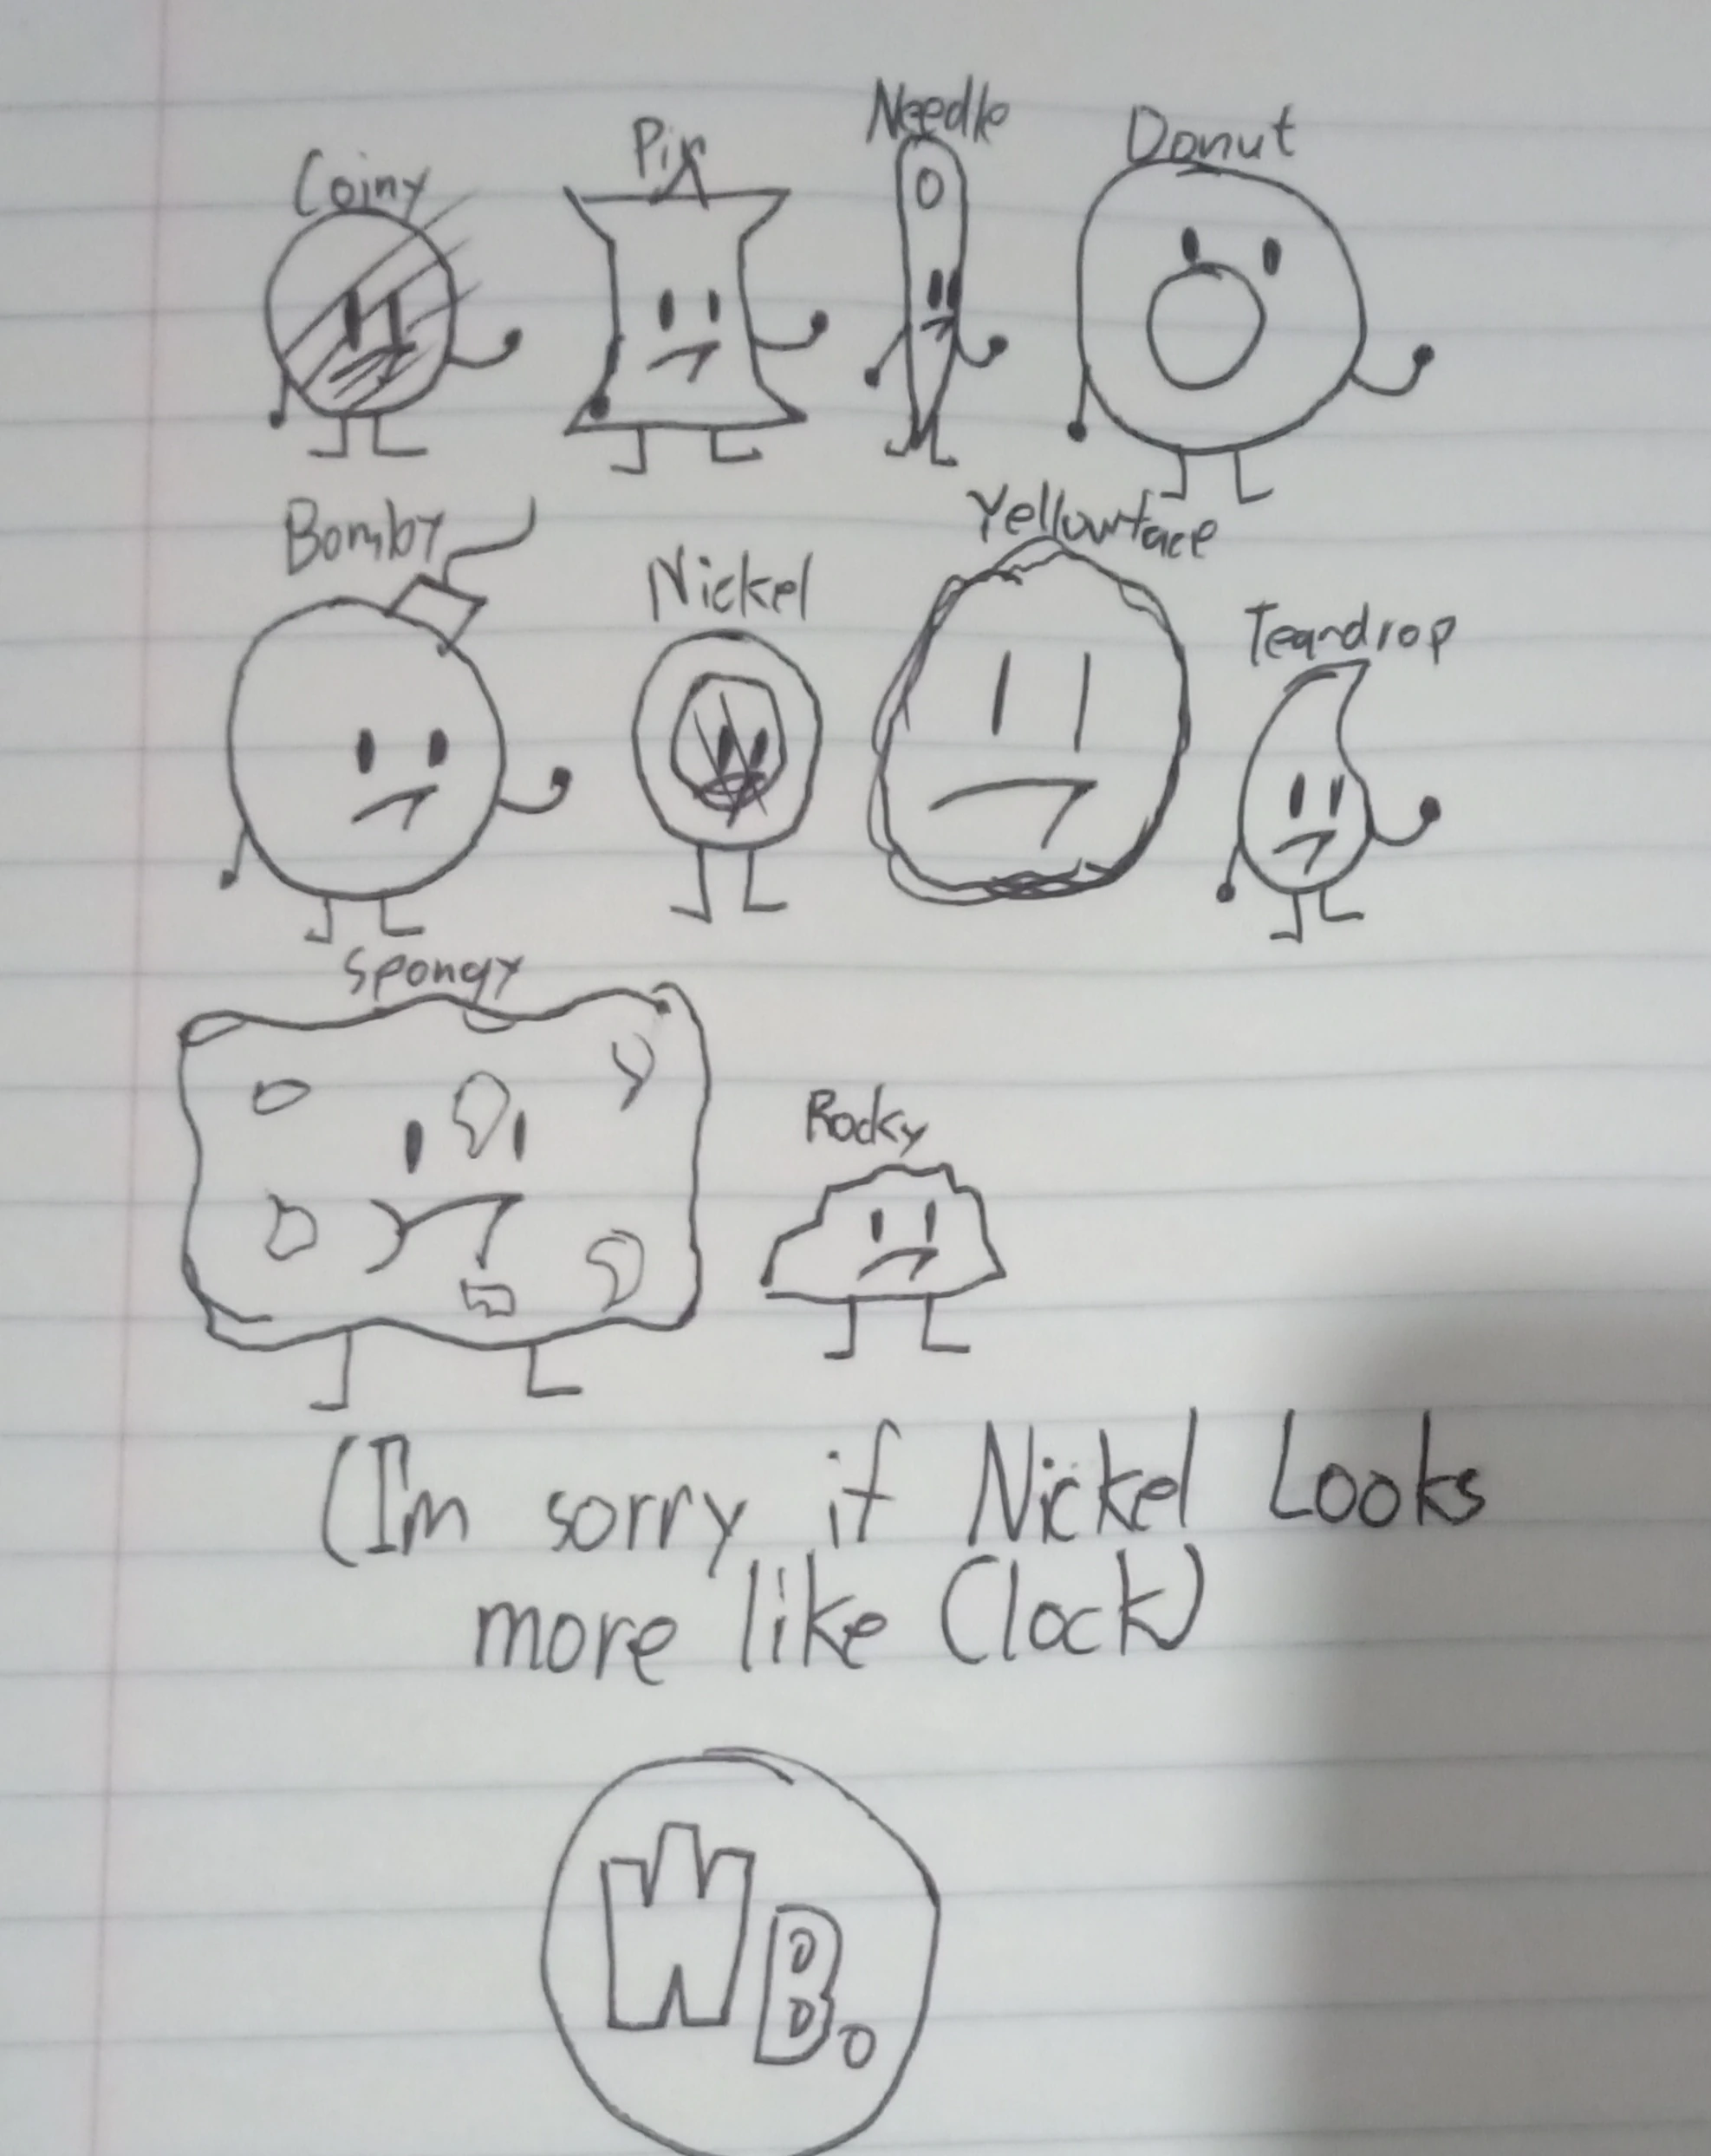 Coiny Pin Needle Donut
Bomby Nickel Yellowface Teardrop
Spongy
Rocky
(I'm sorry if Nickel Looks
more like Clock)
WB.